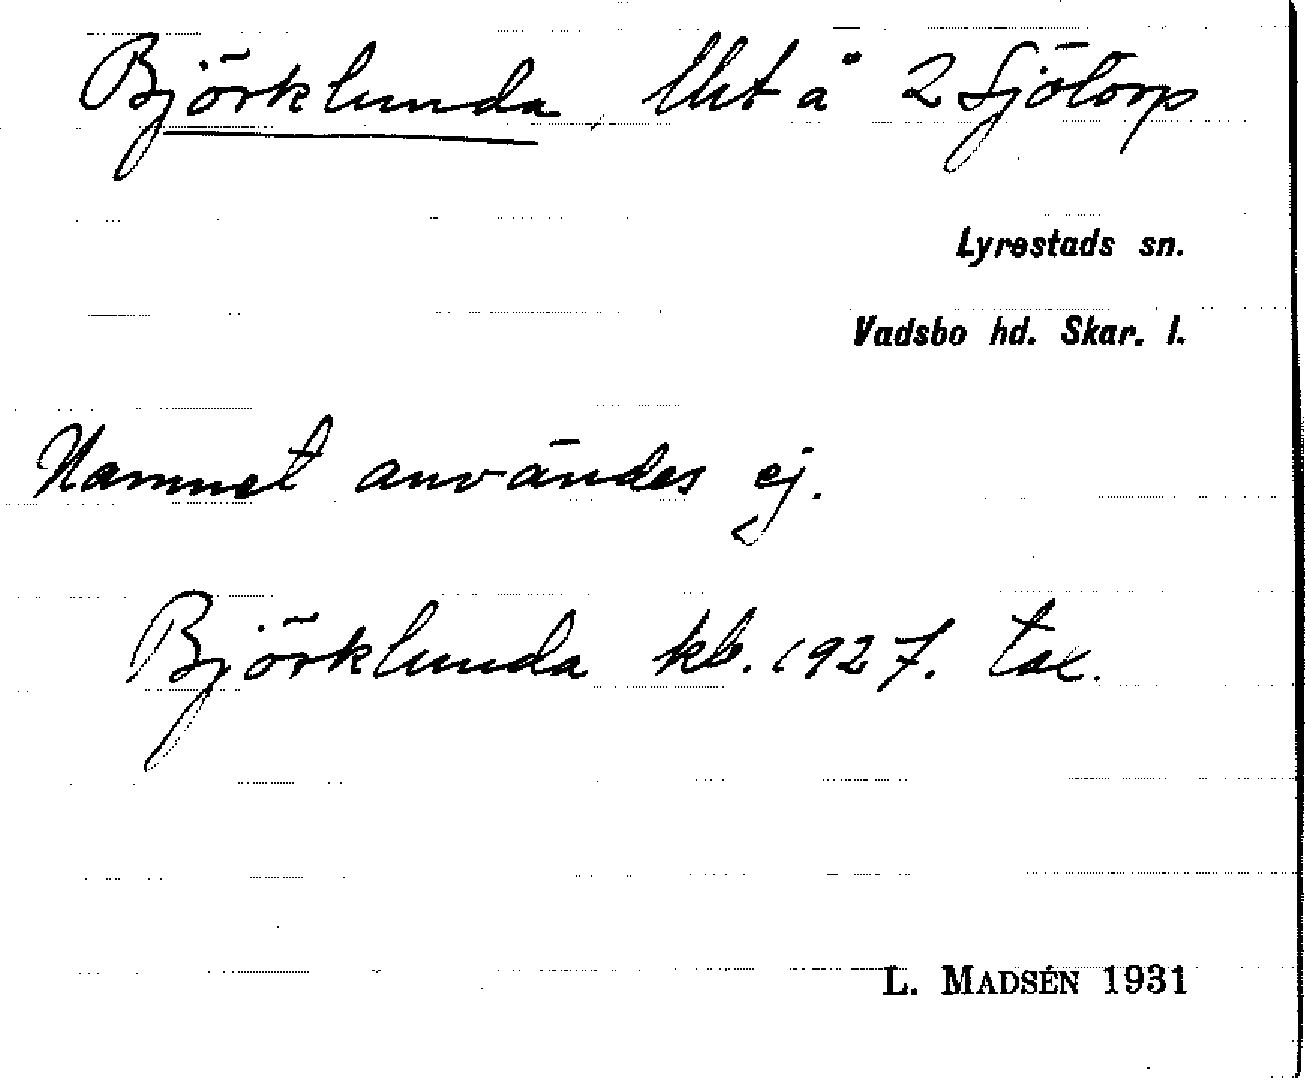 Björklunda, lht å 2 Sjötorp
Lyrestads sn.
Vadsbo hd. Skar. l.
Namnet användes ej.
Björklunda kb. 1927. tax.
L. MADSÉN 1931